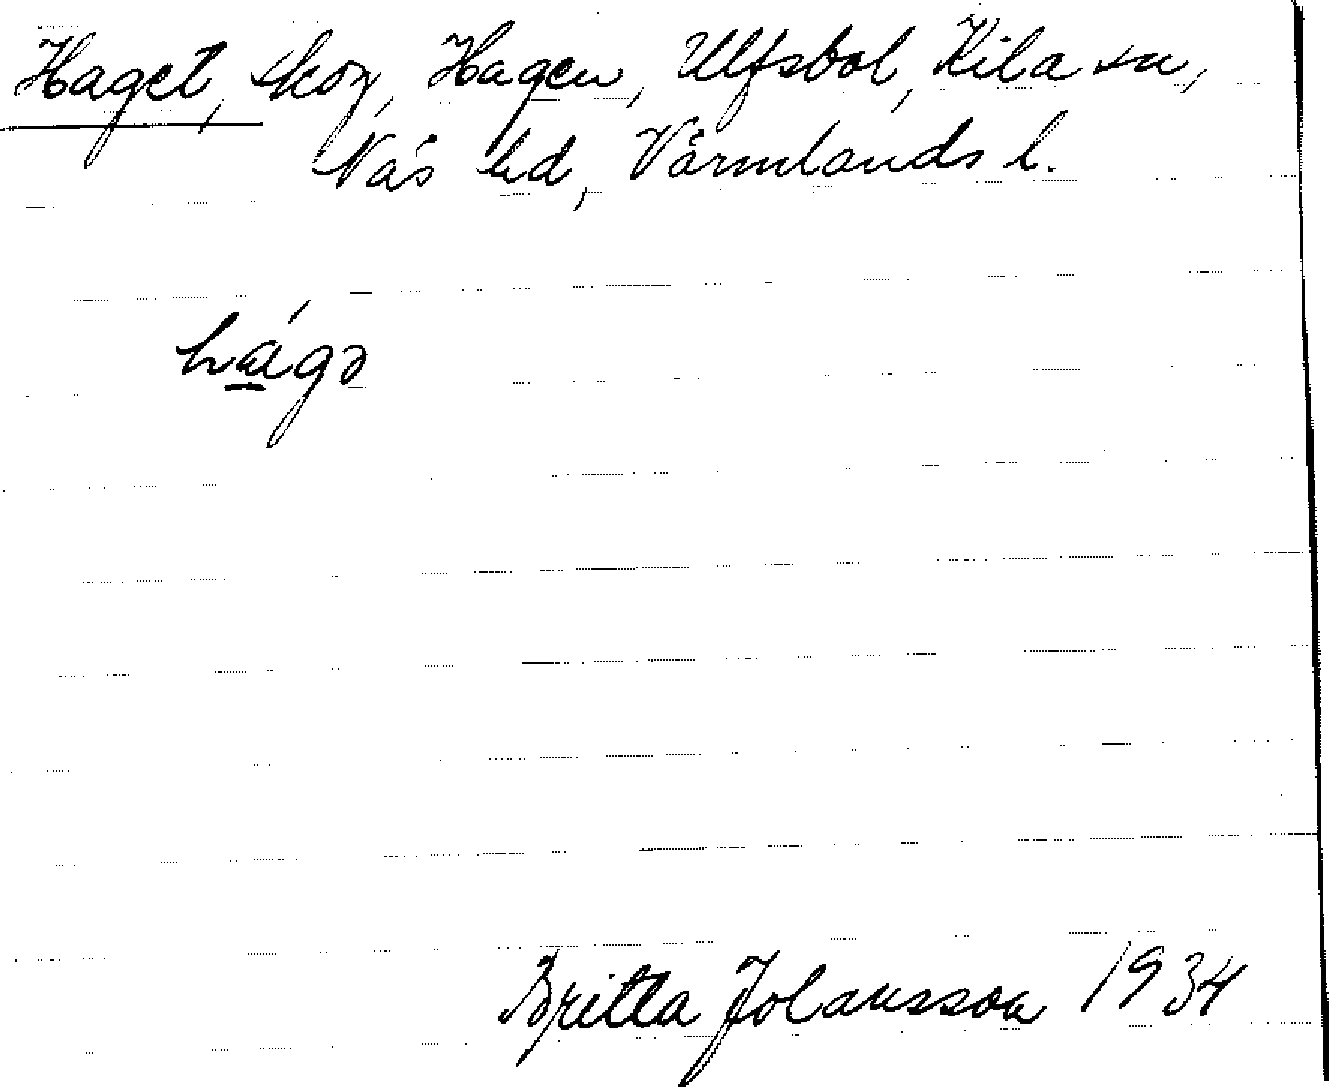 Haget, skog, Hagen, Ulfsbol, Kila sn,
Näs hd, Värmlands l.
há̱gə
Britta Johansson 1934